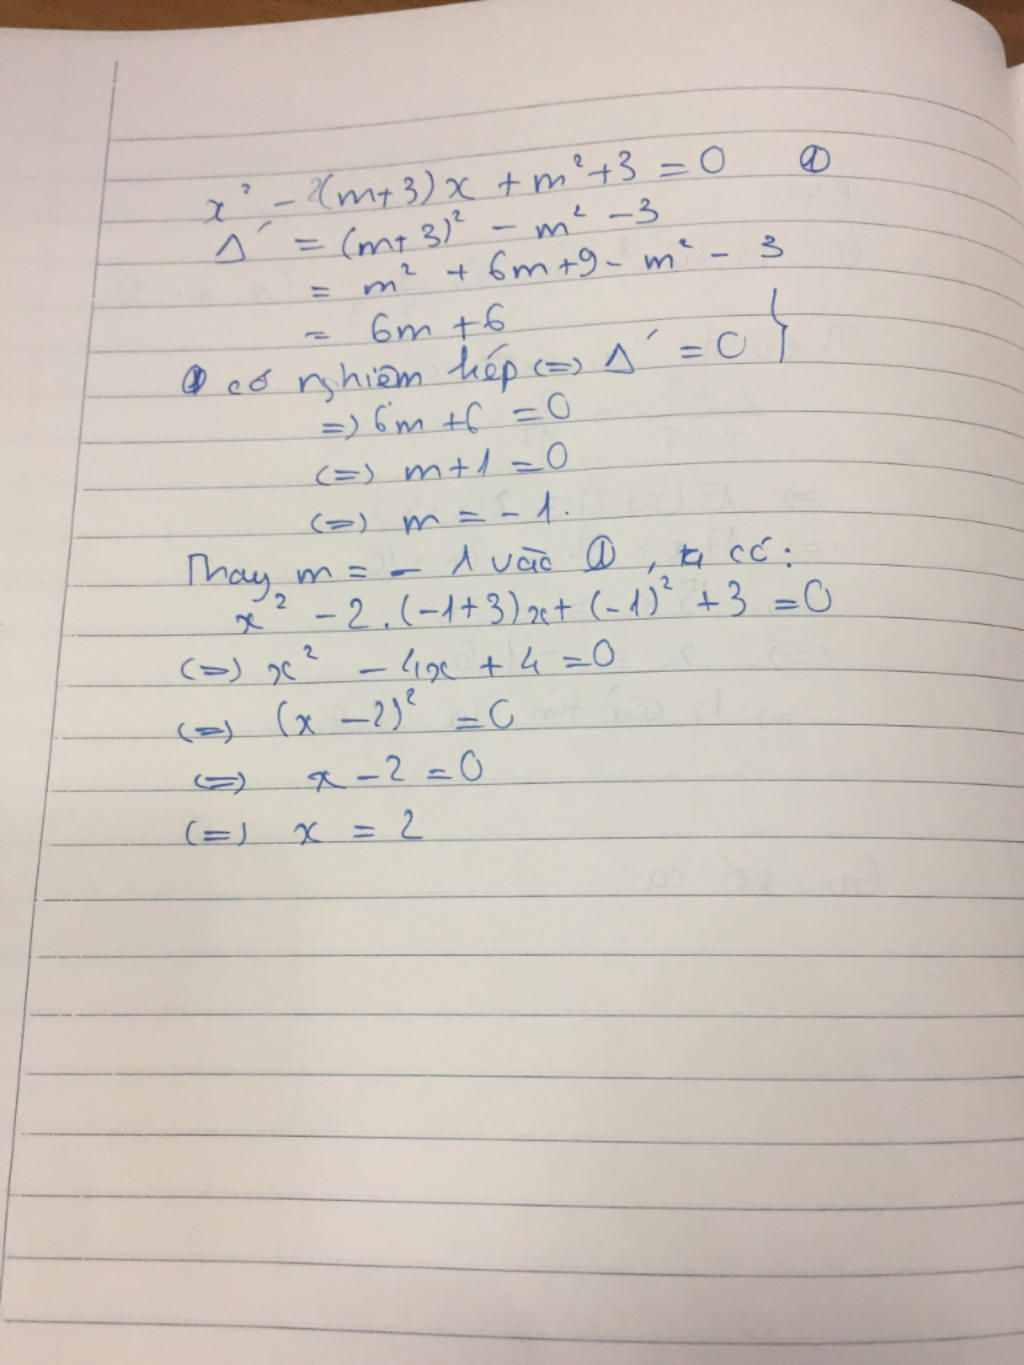 x² - 2(m+3)x + m²+3 = 0 ①
Δ' = (m+3)² - m² - 3
= m² + 6m+9 - m² - 3
= 6m + 6
① có nghiệm kép (=) Δ' = 0 }
=) 6m + 6 = 0
(=) m+1 = 0
(=) m = -1.
Thay m = -1 vào ①, ta có:
x² - 2.(-1+3)x + (-1)² + 3 = 0
(=) x² - 4x + 4 = 0
(=) (x - 2)² = 0
(=) x - 2 = 0
(=) x = 2